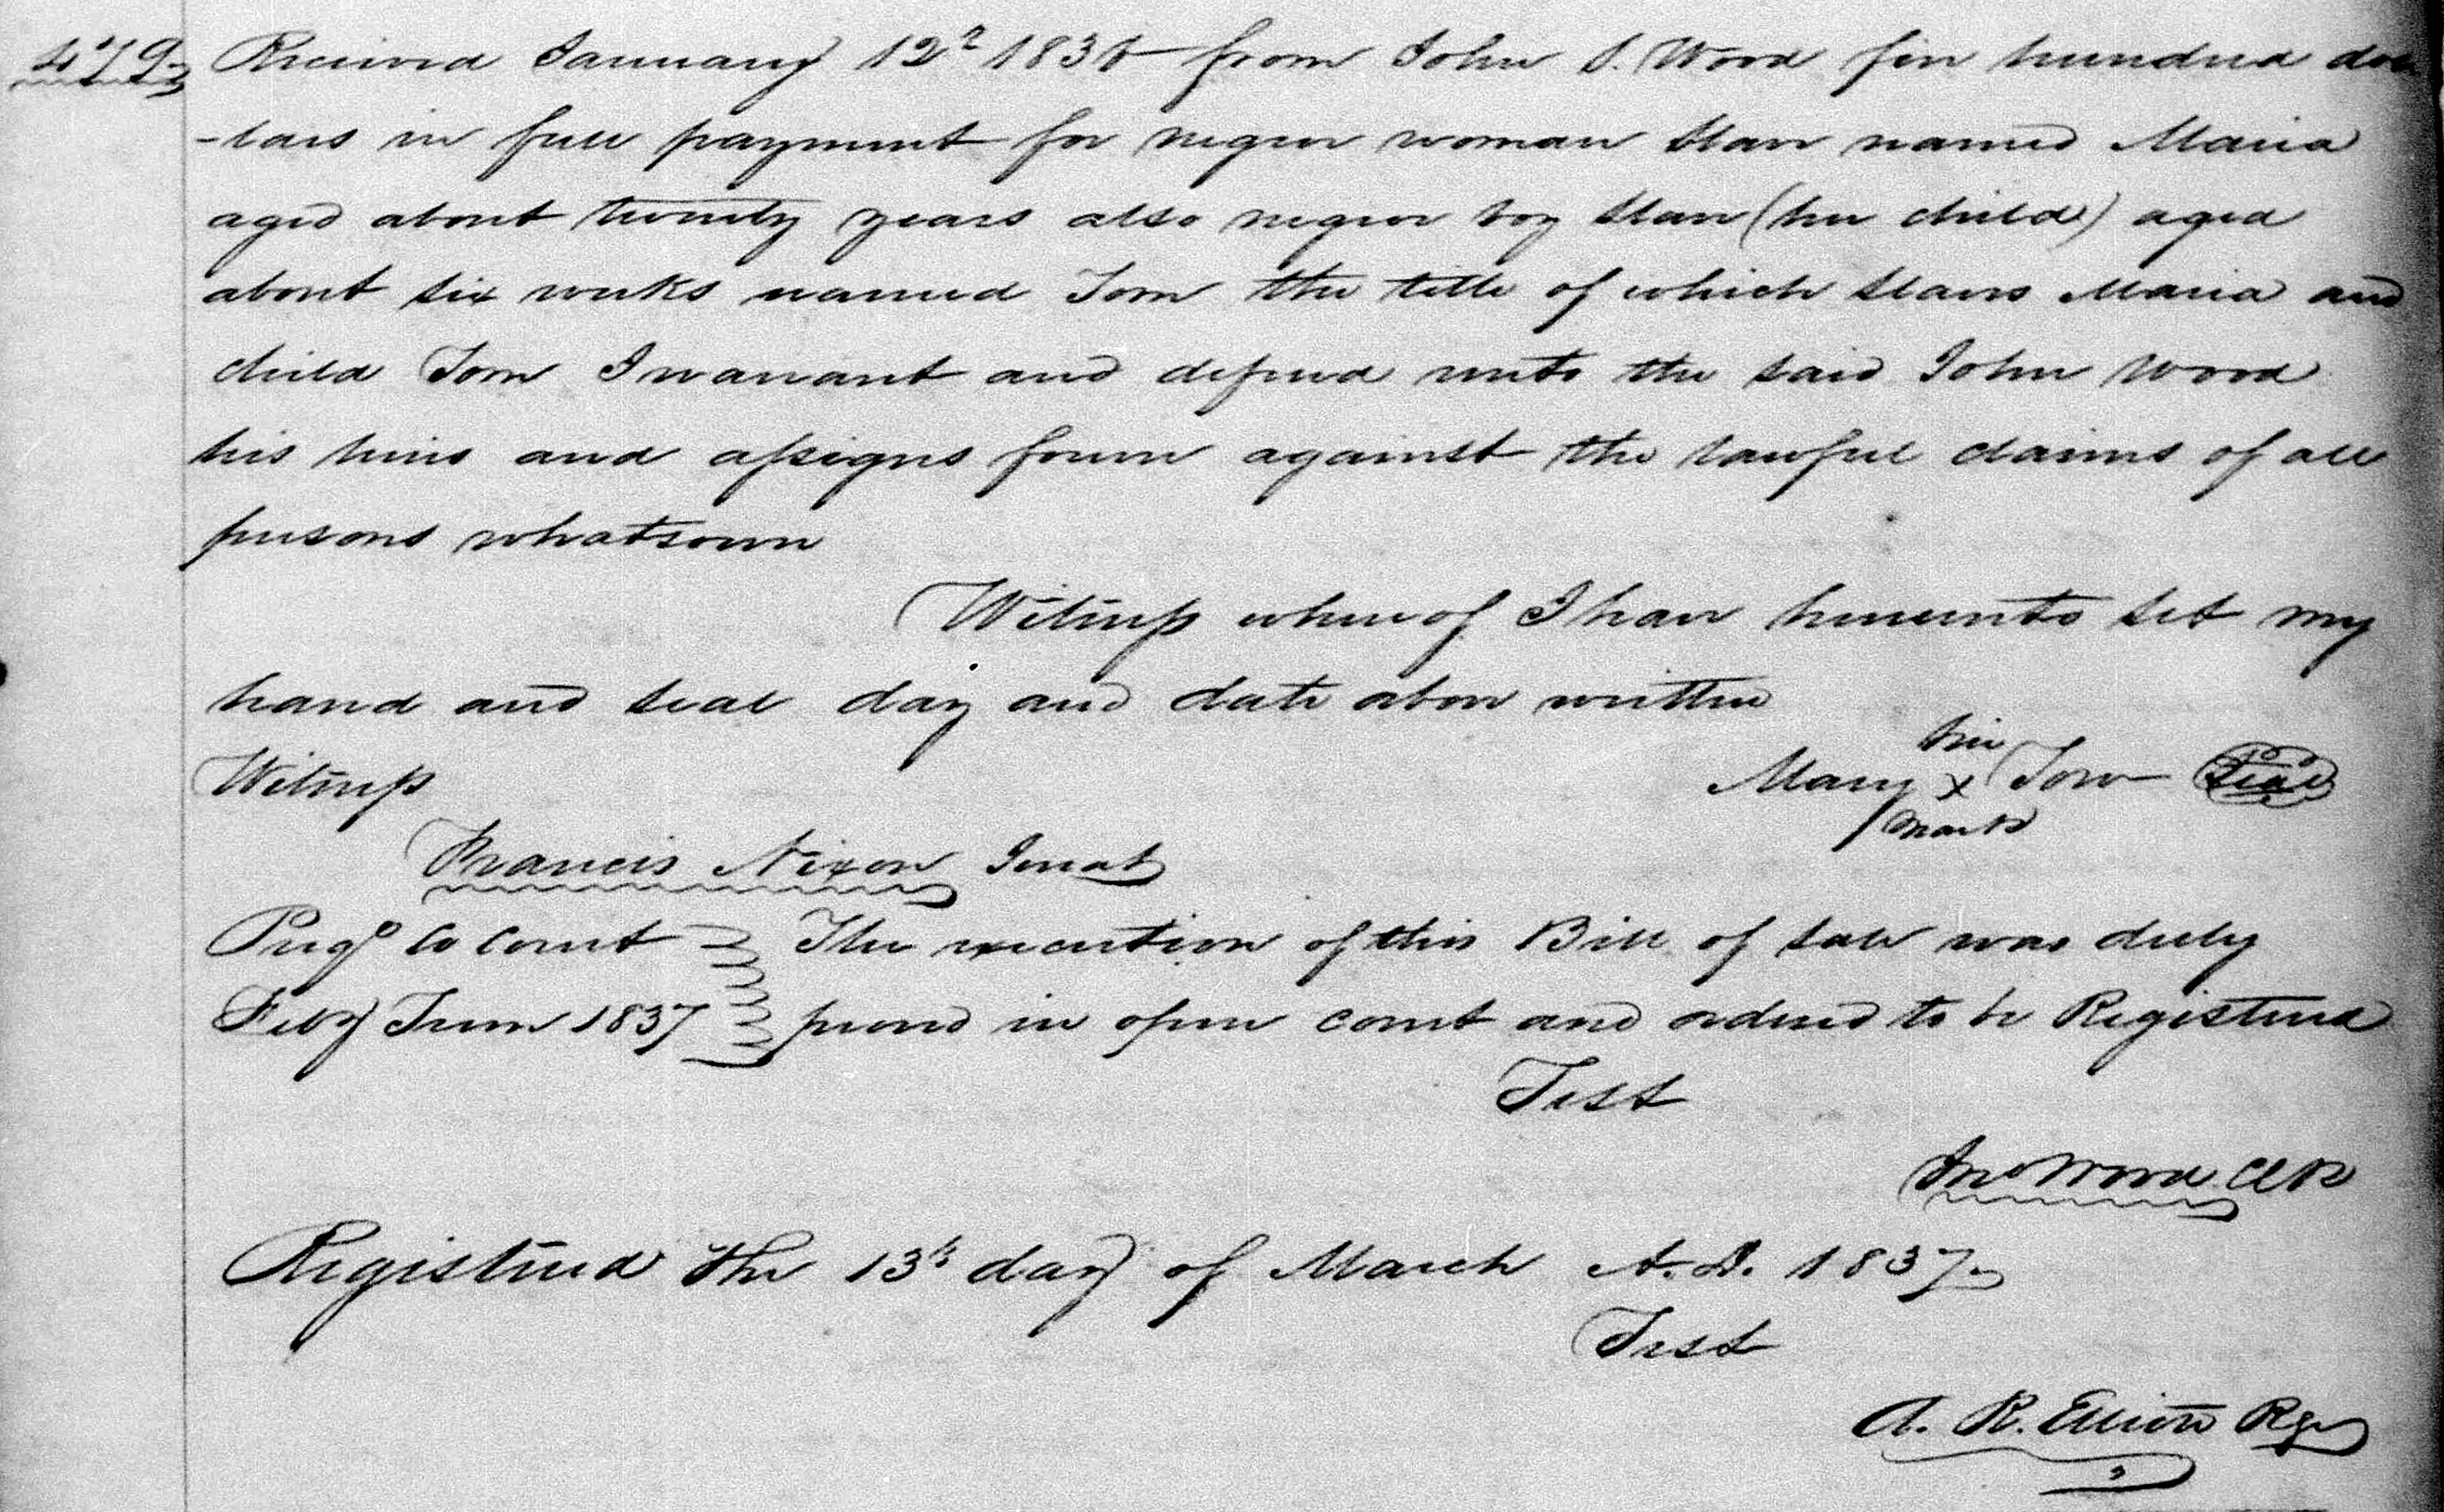 479 Received January 12th 1836 from John S. Wood five hundred dol
-lars in full payment for negro woman slave named Maria
aged about twenty years also negro boy slave (her child) aged
about six weeks named Tom the title of which slaves Maria and
child Tom I warrant and defend unto the said John Wood
his heirs and assigns forever against the lawful claims of all
persons whatsoever
Witness whereof I have hereunto set my
hand and seal day and date above written
her
Witness Mary x Tow Seal
mark
Francis Nixon Jurat
Perqs Co Court The execution of this Bill of sale was duly
Feby Term 1837 proved in open court and ordered to be Registered
Test
Jno Wood Clk
Registered the 13th day of March A.D. 1837
Test
A. R. Elliott Rgr